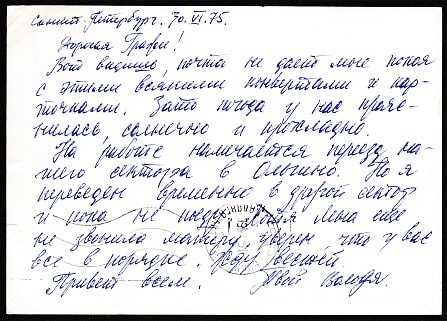 Санкт-Петербург. 30.VI.75.
Дорогая Графи!
Вот видишь, почта не дает мне покоя
с этими всякими конвертами и кар-
точками. Зато погода у нас прояс-
нилась, солнечно и прохладно.
На работе намечается переезд на-
шего сектора в Ольгино. Но я
переведен временно в другой сектор
и пока не еще
не звонила уверен, что у вас
все в порядке. Жду вестей.
Привет всем. Твой Володя.